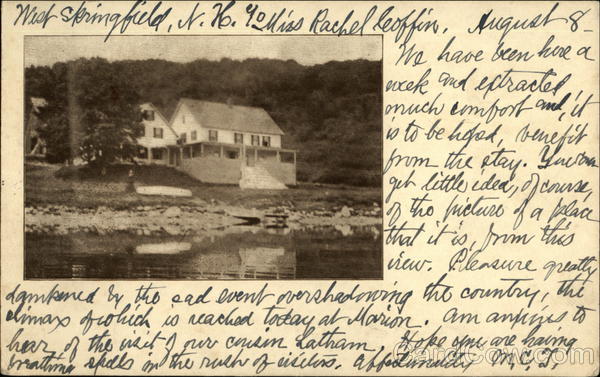 West Springfield, N.H. c/o Miss Rachel Coffin. August 8-
We have been here a
week and extracted
much comfort and, it
is to be hoped, benefit
from the stay. You can
get little idea, of course,
of the picture of a place
that it is, from this
view. Pleasure greatly
dampened by the sad event overshadowing the country, the
climax of which is reached today at Marion. Am anxious to
hear of the visit of our cousin Latham. Hope you are having
breathing spells in the rush of visitors. Affectionately M.C.T.
CardCow.com